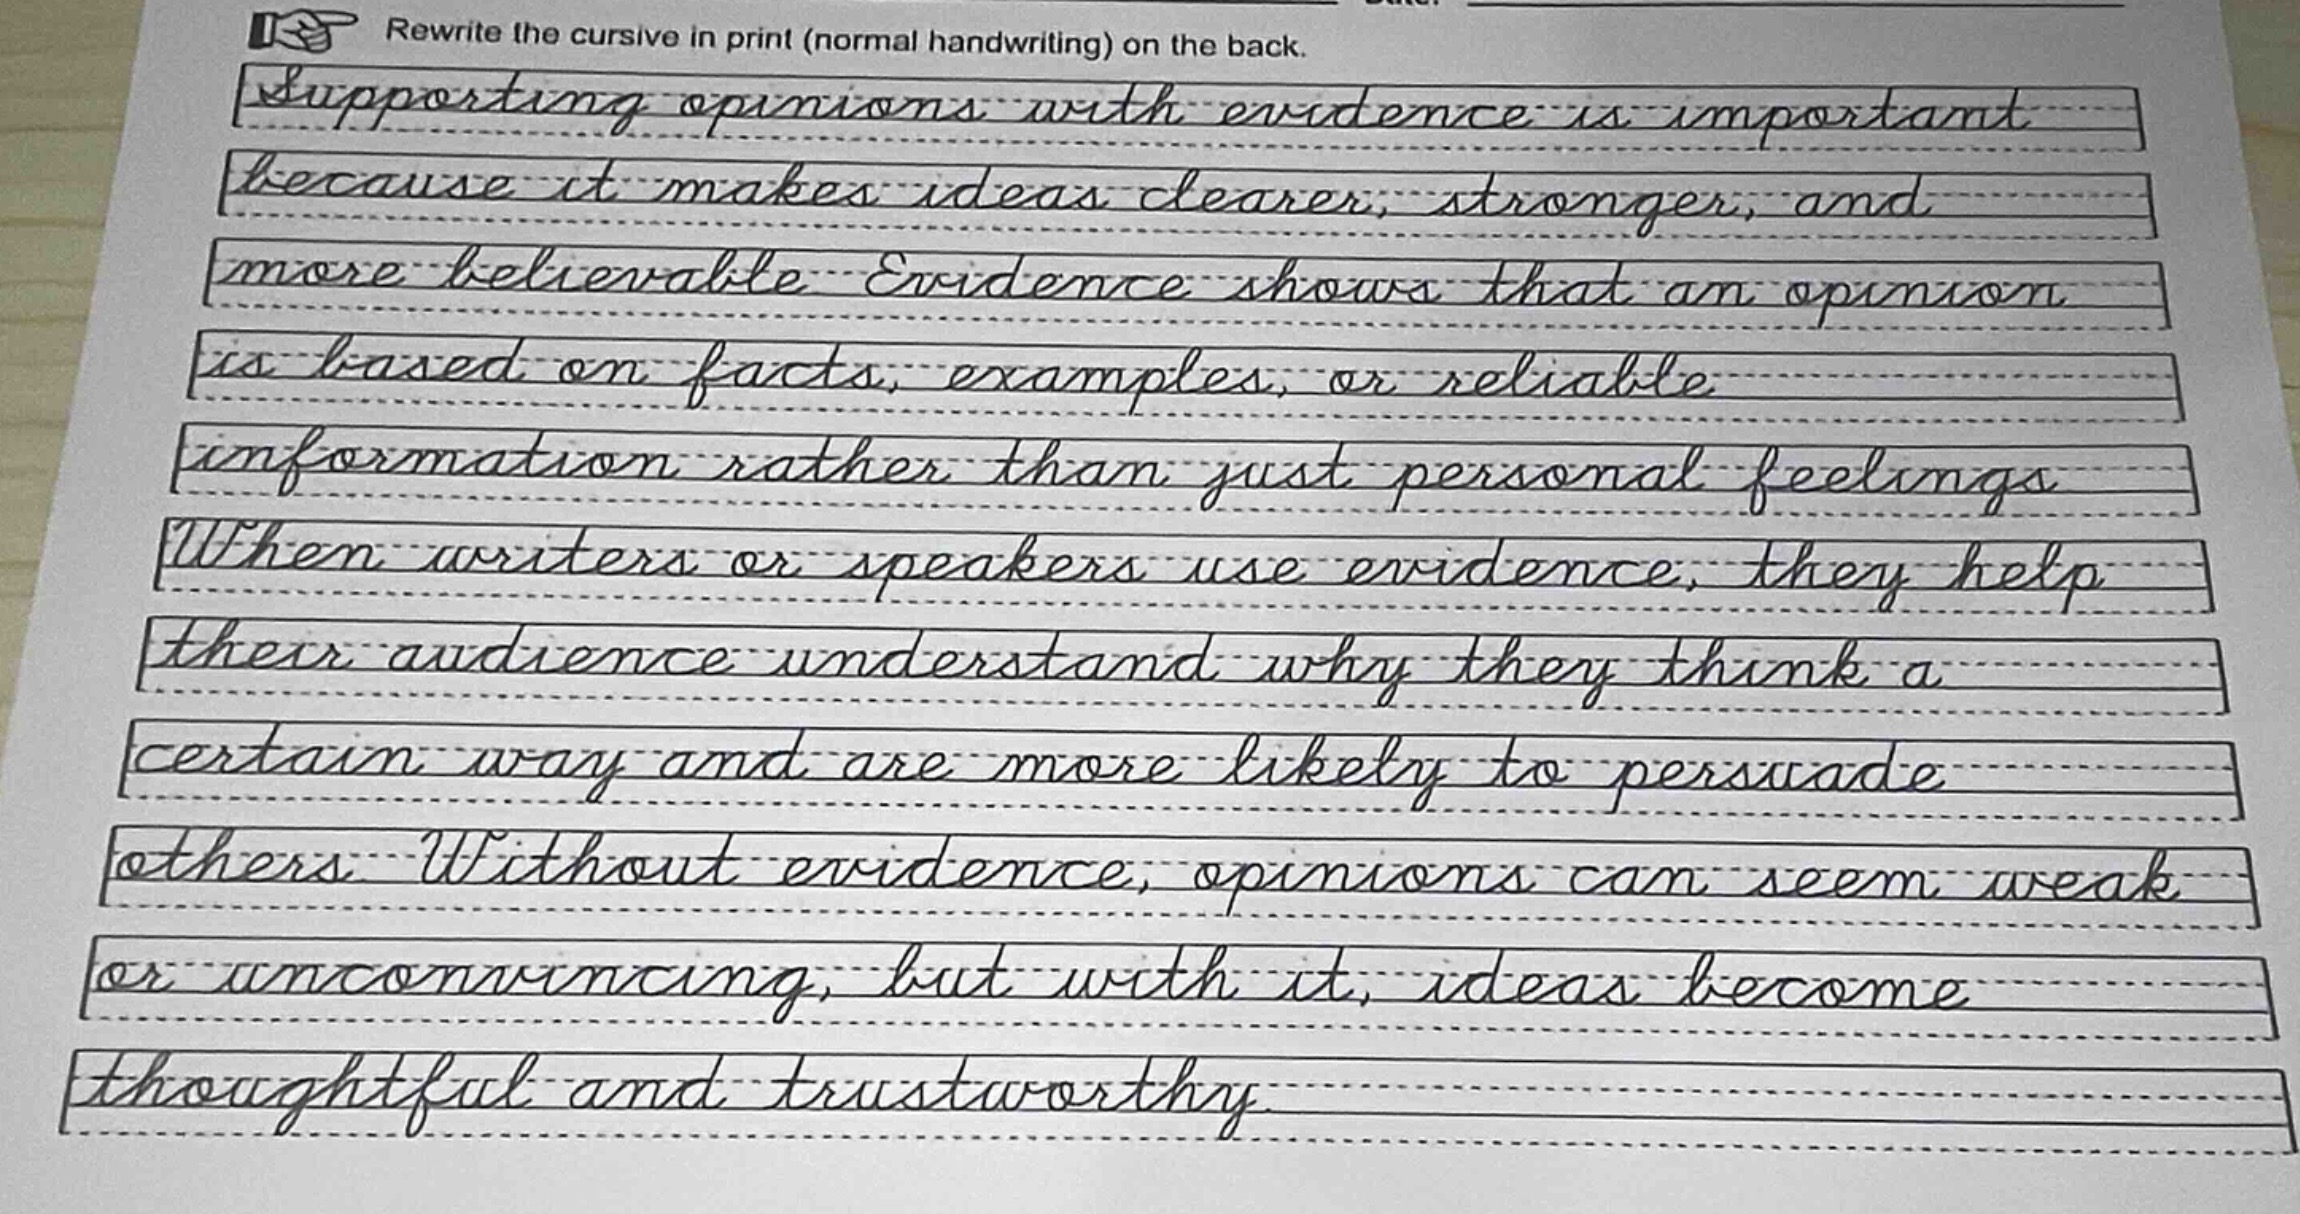 Rewrite the cursive in print (normal handwriting) on the back.
Supporting opinions with evidence is important
because it makes ideas clearer, stronger, and
more believable. Evidence shows that an opinion
is based on facts, examples, or reliable
information rather than just personal feelings.
When writers or speakers use evidence, they help
their audience understand why they think a
certain way and are more likely to persuade
others. Without evidence, opinions can seem weak
or unconvincing, but with it, ideas become
thoughtful and trustworthy.